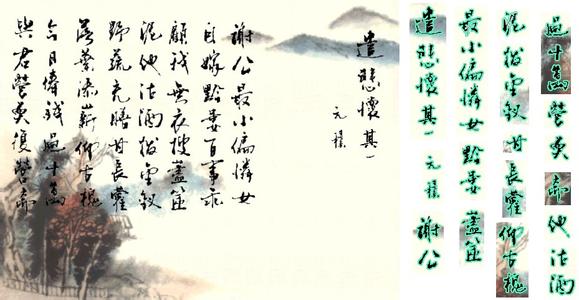 遣悲懷其一
元稹
謝公最小偏憐女
自嫁黔婁百事乖
顧我無衣搜藎篋
泥他沽酒拔金釵
野蔬充膳甘長藿
落葉添薪仰古槐
今日俸錢過十萬
與君營奠復營齋
遣悲懷其一 元稹 謝公
最小偏憐女 黔婁 藎篋
泥 拔金釵 甘長藿 仰古槐
過十萬 營奠 齋 他沽酒